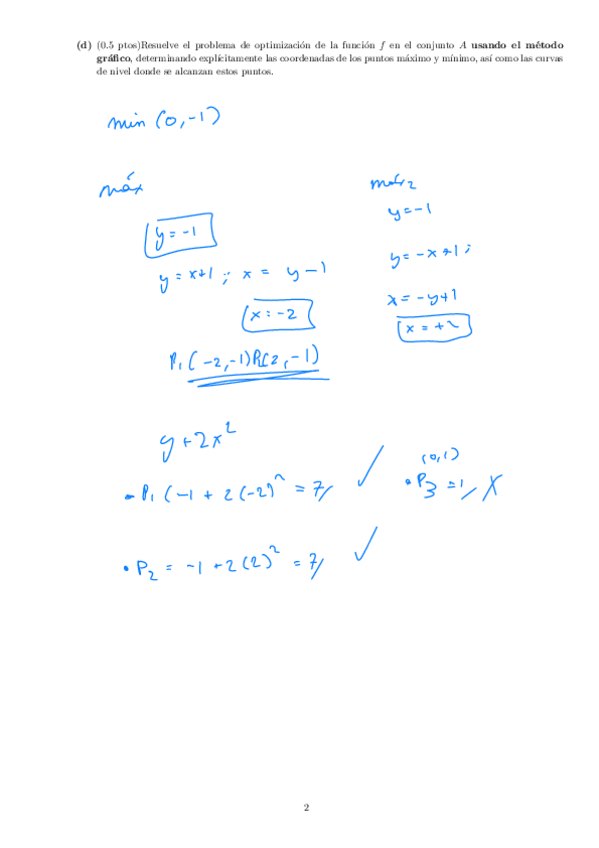 (d) (0.5 ptos)Resuelve el problema de optimización de la función f en el conjunto A usando el método
gráfico, determinando explícitamente las coordenadas de los puntos máximo y mínimo, así como las curvas
de nivel donde se alcanzan estos puntos.
min (0,-1)
máx
y = -1
y = x+1 ; x = y-1
x = -2
P₁(-2,-1) P₂(2,-1)
máx₂
y = -1
y = -x+1 ;
x = -y+1
x = +2
y + 2x²
- P₁ (-1 + 2(-2)² = 7/ ✓
(0,1)
• P₃ = 1/ X
• P₂ = -1 + 2(2)² = 7/ ✓
2